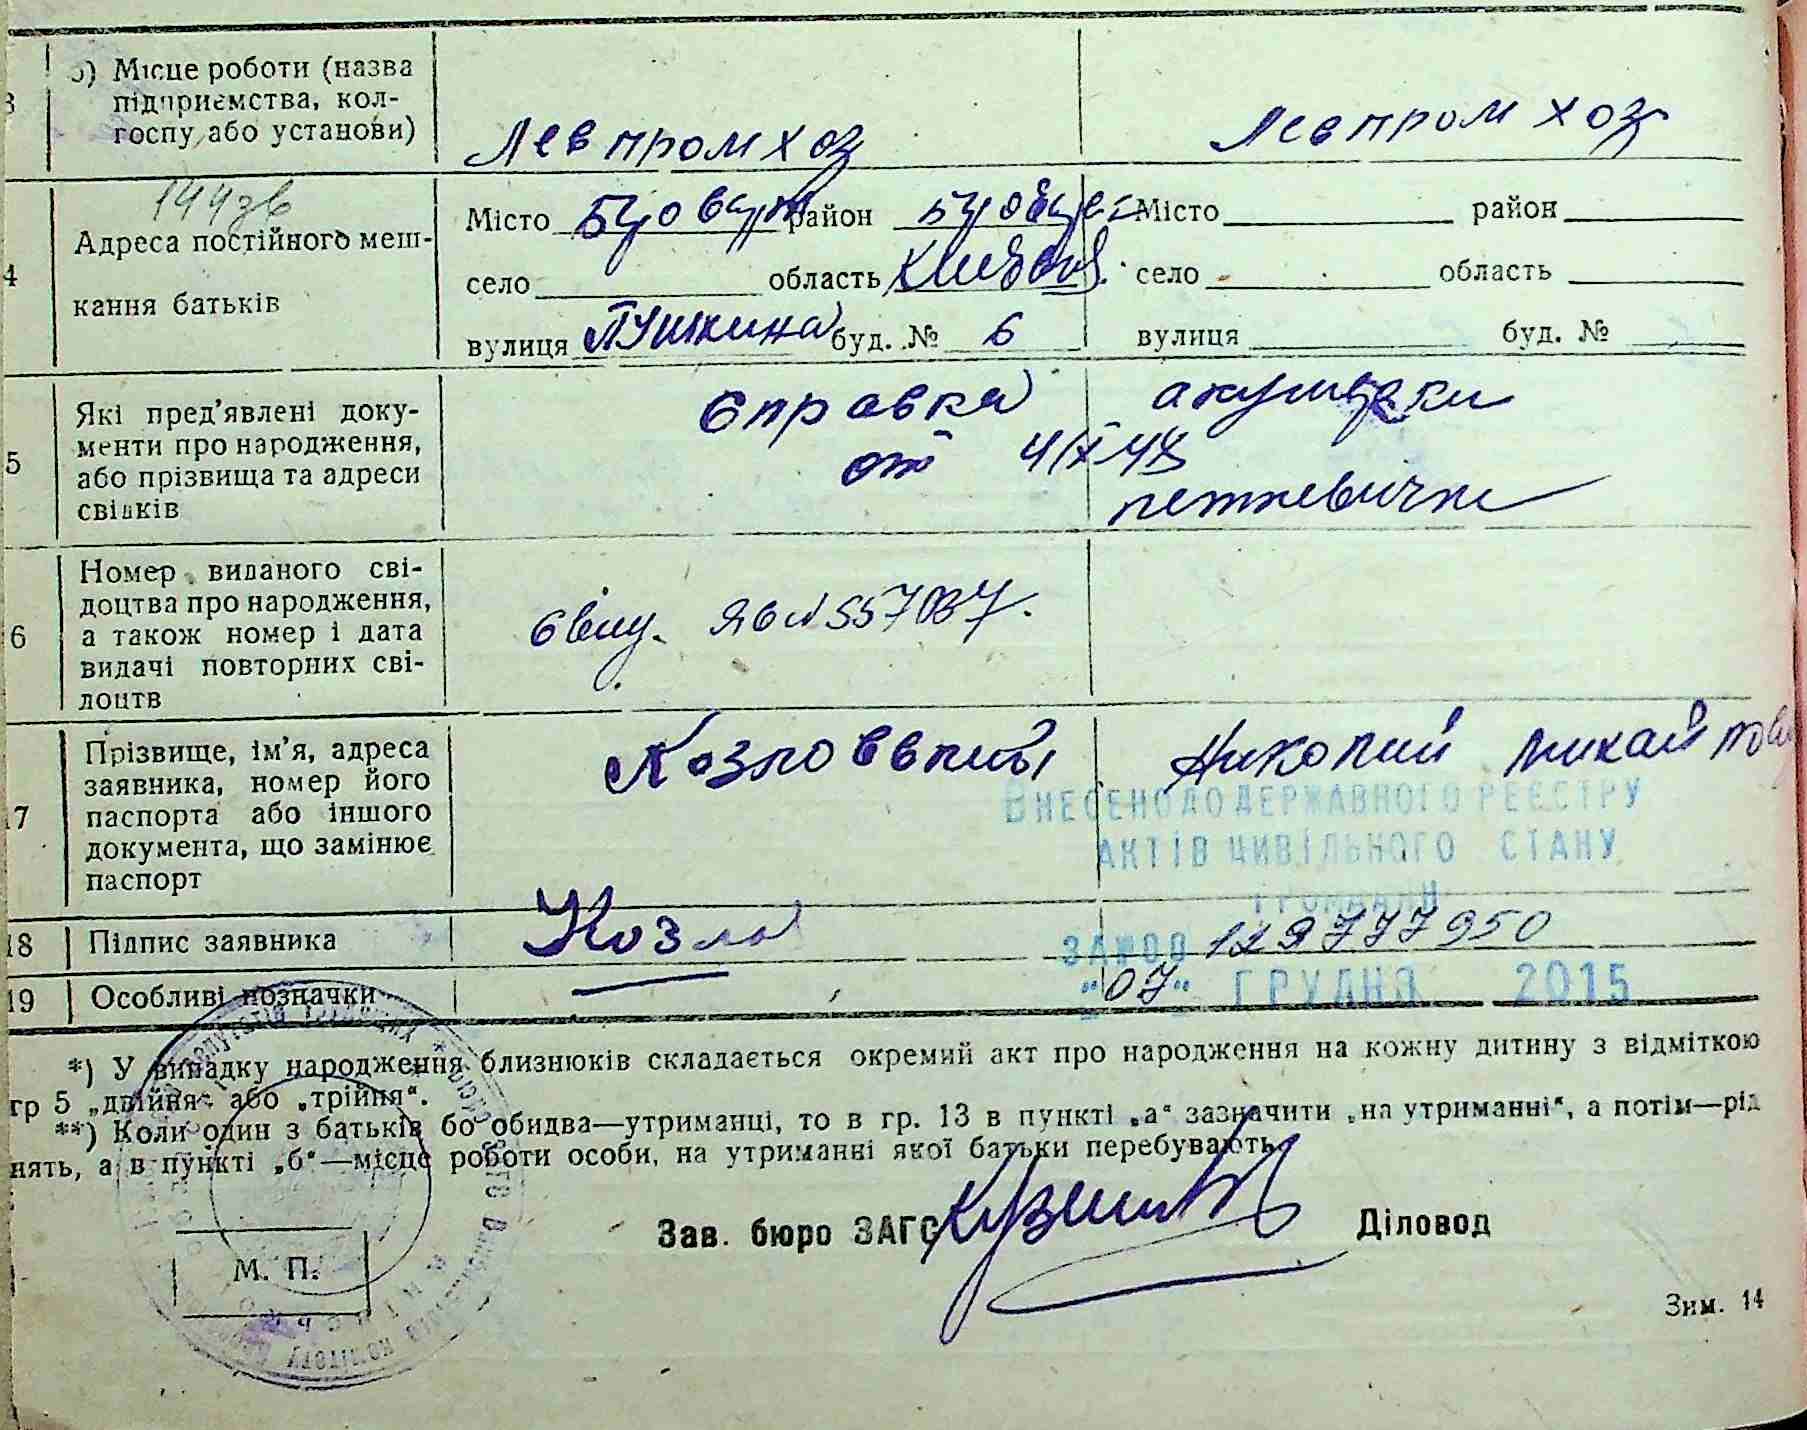 б) Місце роботи (назва
підприємства, кол-
госпу або установи)
Левпромхоз
Левпромхоз
4
Адреса постійного меш-
кання батьків
Місто Бровари район
Місто район
село область Київськ.
село область
вулиця Пушкина буд. № 6
вулиця буд. №
5
Які пред'явлені доку-
менти про народження,
або прізвища та адреси
свідків
Справка акушерки
от
петкевичк
6
Номер виданого сві-
доцтва про народження,
а також номер і дата
видачі повторних сві-
доцтв
Свид. ЯБ № 557037.
17
Прізвище, ім'я, адреса
заявника, номер його
паспорта або іншого
документа, що замінює
паспорт
Козловський Николай
ВНЕСЕНО ДО ДЕРЖАВНОГО РЕЄСТРУ
АКТІВ ЦИВІЛЬНОГО СТАНУ
ГРОМАДЯН
18
Підпис заявника
Козло
ЗА №00 129777950
19
Особливі позначки
"07" ГРУДНЯ 2015
*) У випадку народження близнюків складається окремий акт про народження на кожну дитину з відміткою
гр 5 „двійня“ або „трійня“.
**) Коли один з батьків бо обидва—утриманці, то в гр. 13 в пункті „а“ зазначити „на утриманні“, а потім—рід
нять, а в пункті „б“—місце роботи особи, на утриманні якої батьки перебувають.
Зав. бюро ЗАГС
Діловод
М. П.
Зим. 14